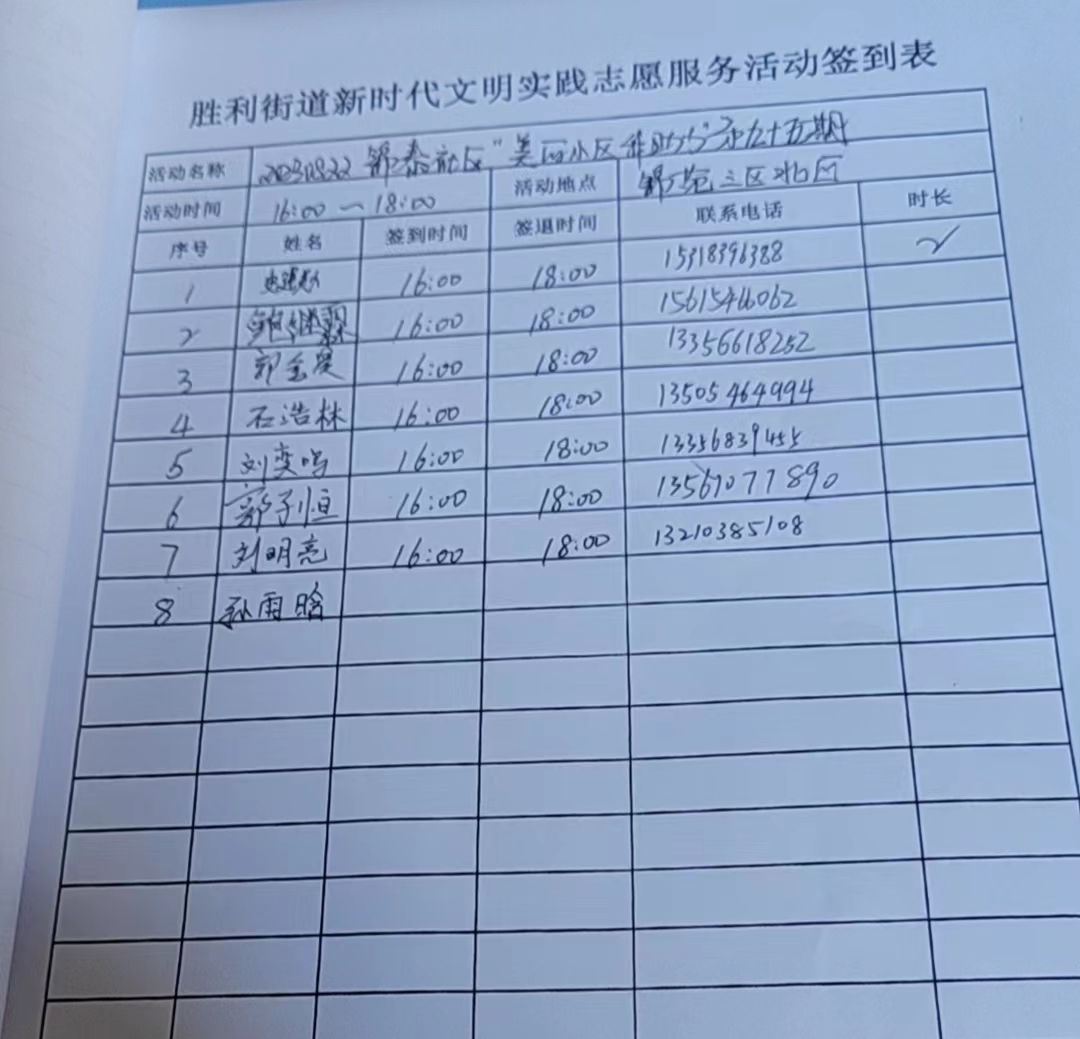 胜利街道新时代文明实践志愿服务活动签到表
活动名称 20230822 锦泰社区"美丽小区 你我助力"第九十五期
活动时间 16:00 — 18:00 活动地点 锦苑三区北区
序号 姓名 签到时间 签退时间 联系电话 时长
1 16:00 18:00 15318396388 2
2 鲍继霖 16:00 18:00
3 郭金星 16:00 18:00 13356618252
4 石浩林 16:00 18:00 13505464994
5 刘奕鸣 16:00 18:00 13356839455
6 郭子恒 16:00 18:00
7 刘明亮 16:00 18:00 13210385108
8 孙雨晗